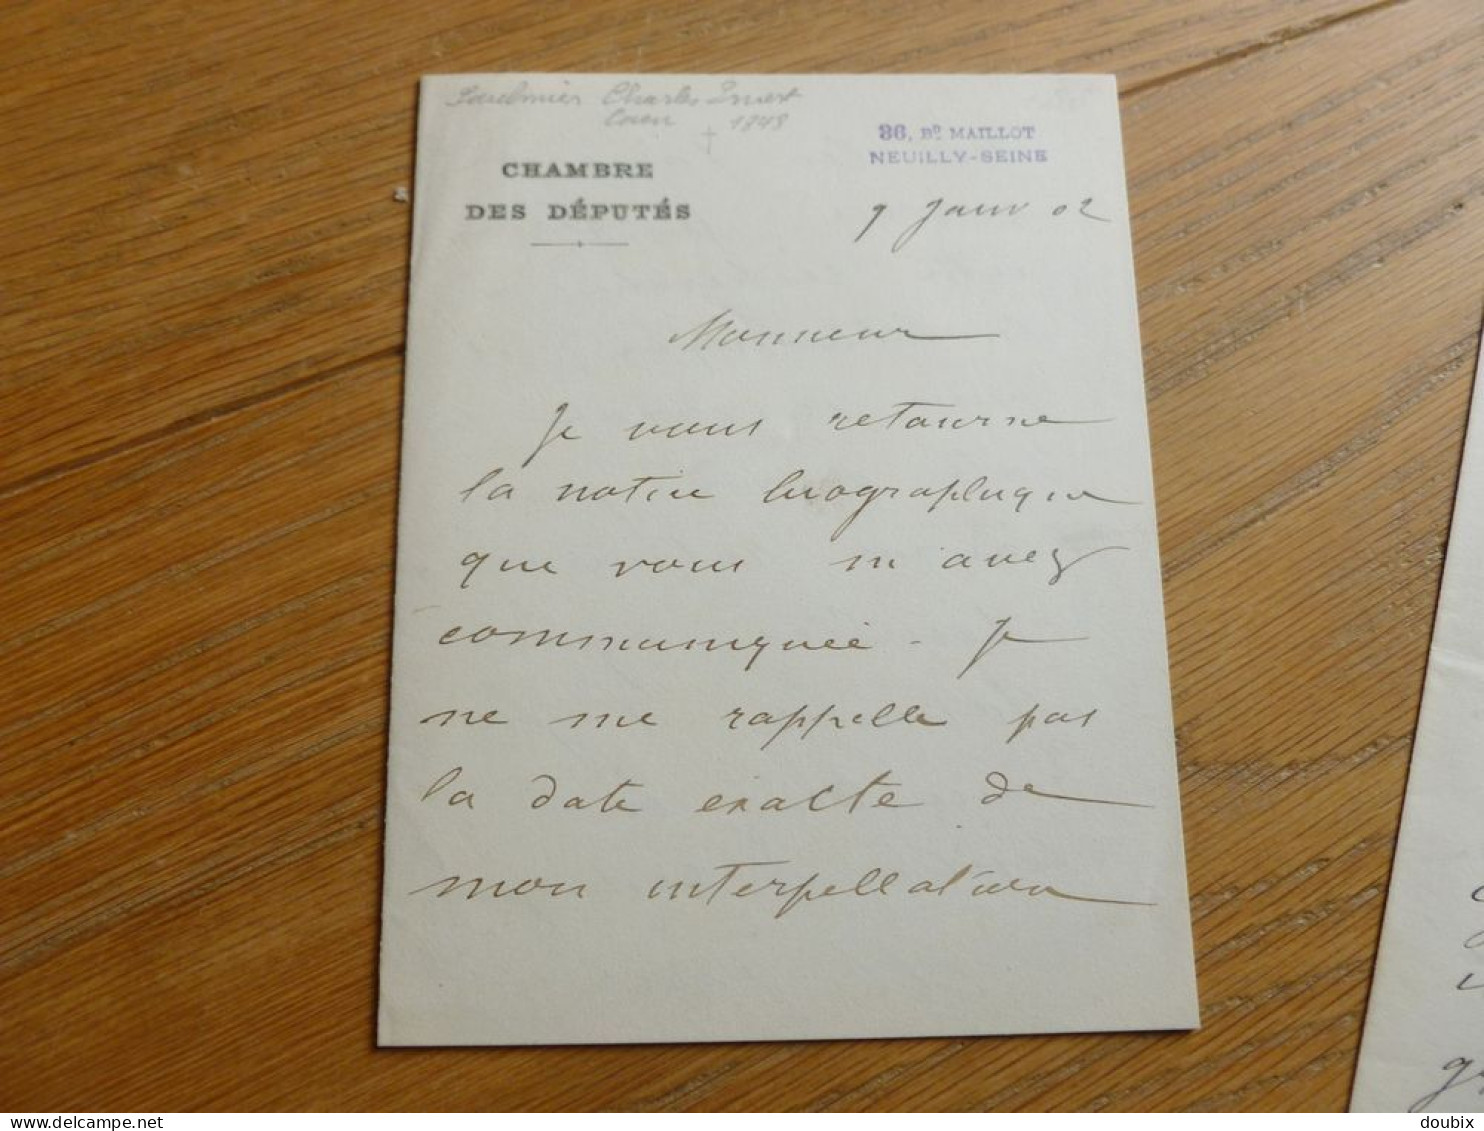 Charles Ernest
Caen † 1848
CHAMBRE
DES DÉPUTÉS
86, Bd MAILLOT
NEUILLY-SEINE
9 Janv 02
Monsieur
Je vous retourne
la notice biographique
que vous m'avez
communiquée - Je
ne me rappelle pas
la date exacte de
mon interpellation
doubix